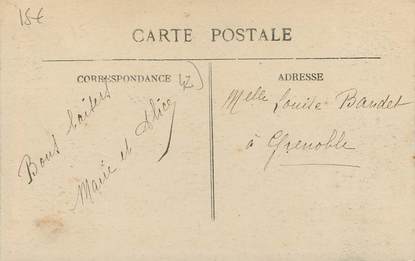 18€
CARTE POSTALE
CORRESPONDANCE
ADRESSE
Bons baisers
Marie et Alice
Melle Louise Baudet
à Grenoble